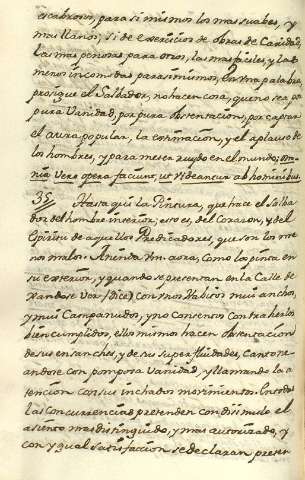 escabrosos, para si mismos los mas suabes, y
mas llanos, si de exercicios de obras de Caridad,
las mas penosas para otros, las mas faciles, y las
menos incomodas para si mismos, en una palabra,
prosigue el Salbador, no hacen cosa, que no sea por
pura Vanidad, por pura obstentacion, por captar
el aura popular, la estimacion, y el aplauso de
los hombres, y para meter ruydo en el mundo, om-
nia vero opera faciunt, ut videantur ab hominibus.
35 Hasta aqui la Pintura, que hace el Salba-
dor del hombre interior, esto es, del Corazon, y del
Espiritu de aquellos Predicadores, que son los me-
nos malos. Atienda Vm aora, como los pinta en
su exterior, y quando se presentan en la Calle de-
xandose Ver (dice) con unos Habitos mui anchos,
y mui Campanudos, y no contentos con traherlos
bien cumplidos, ellos mismos hacen obstentacion
de sus ensanches, y de sus superfluidades, Cantone-
andose con pomposa Vanidad, y llamando la a-
tencion con sus inchados movimientos. En todas
las Concurrencias pretenden con disimulo el
asiento mas distinguido, y mas autorizado, y
con ygual satisfaccion se declaran preten-